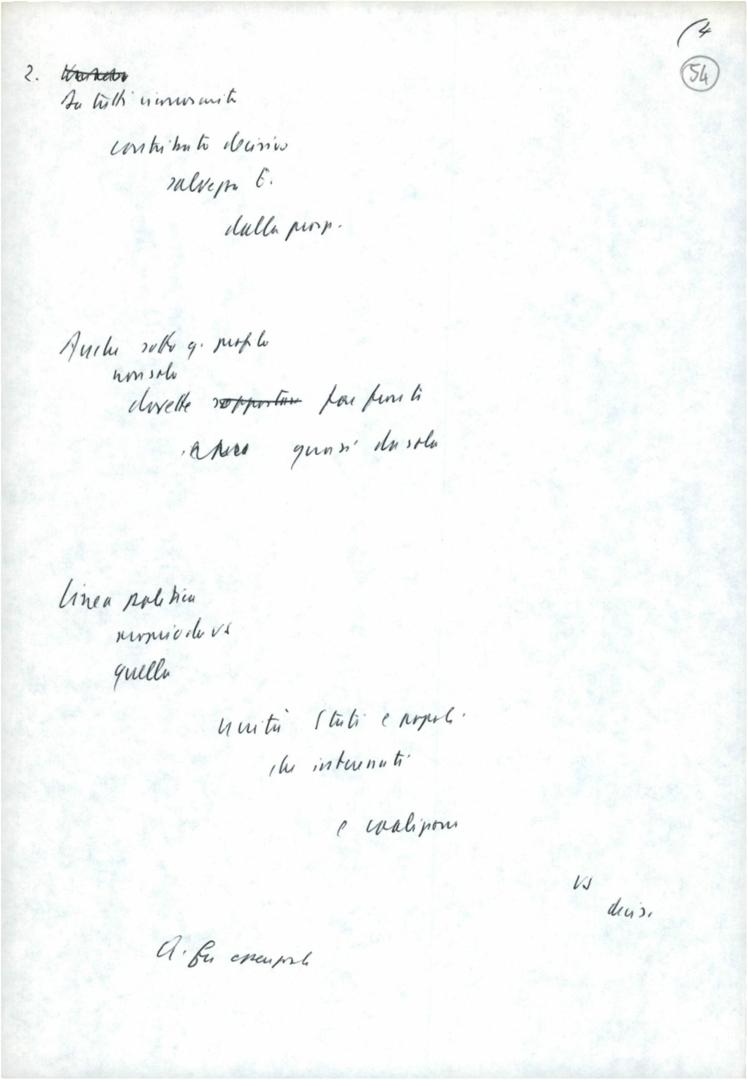 (4
54
2.
Da tutti riconosciuto
contributo decisivo
salvezza E.
dalla prosp.
Anche sotto q. profilo
non solo
dovette sopportare fare fronte
quasi da sola
linea politica
quella
unità Stati e popoli
che interenati
e coalizione
vs
decis.
A. fu essenziale